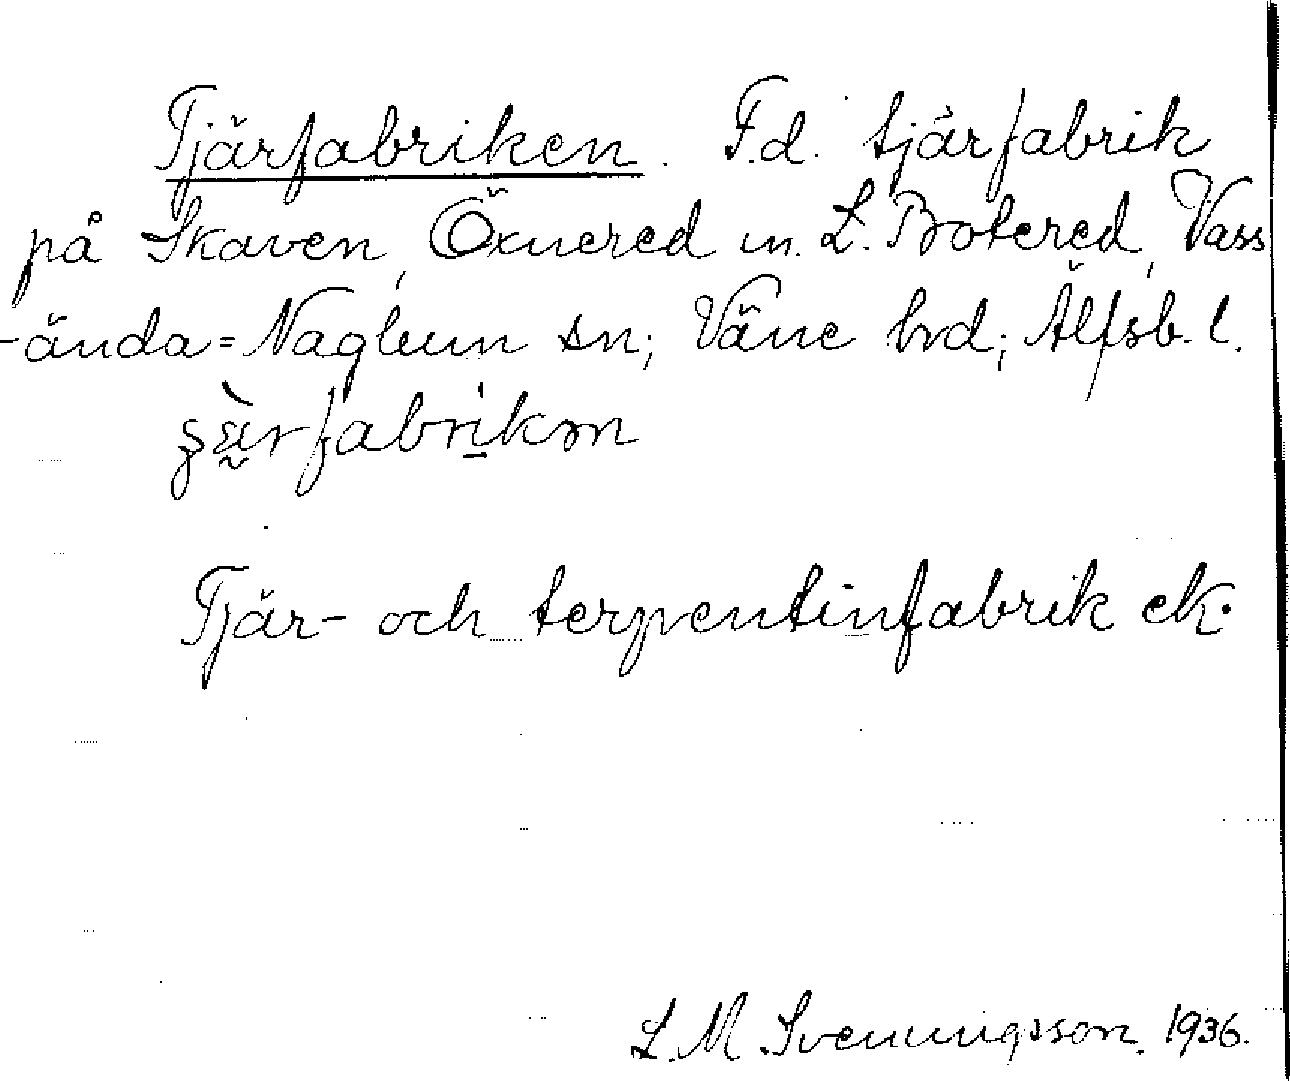 Tjärfabriken. F.d. tjärfabrik
på Skaven, Öxnered m. L. Botered, Vass
-ända=Naglum sn; Väne hrd; Älfsb. l.
Tjär- och terpentinfabrik ek.
L. M. Svenningsson. 1936.